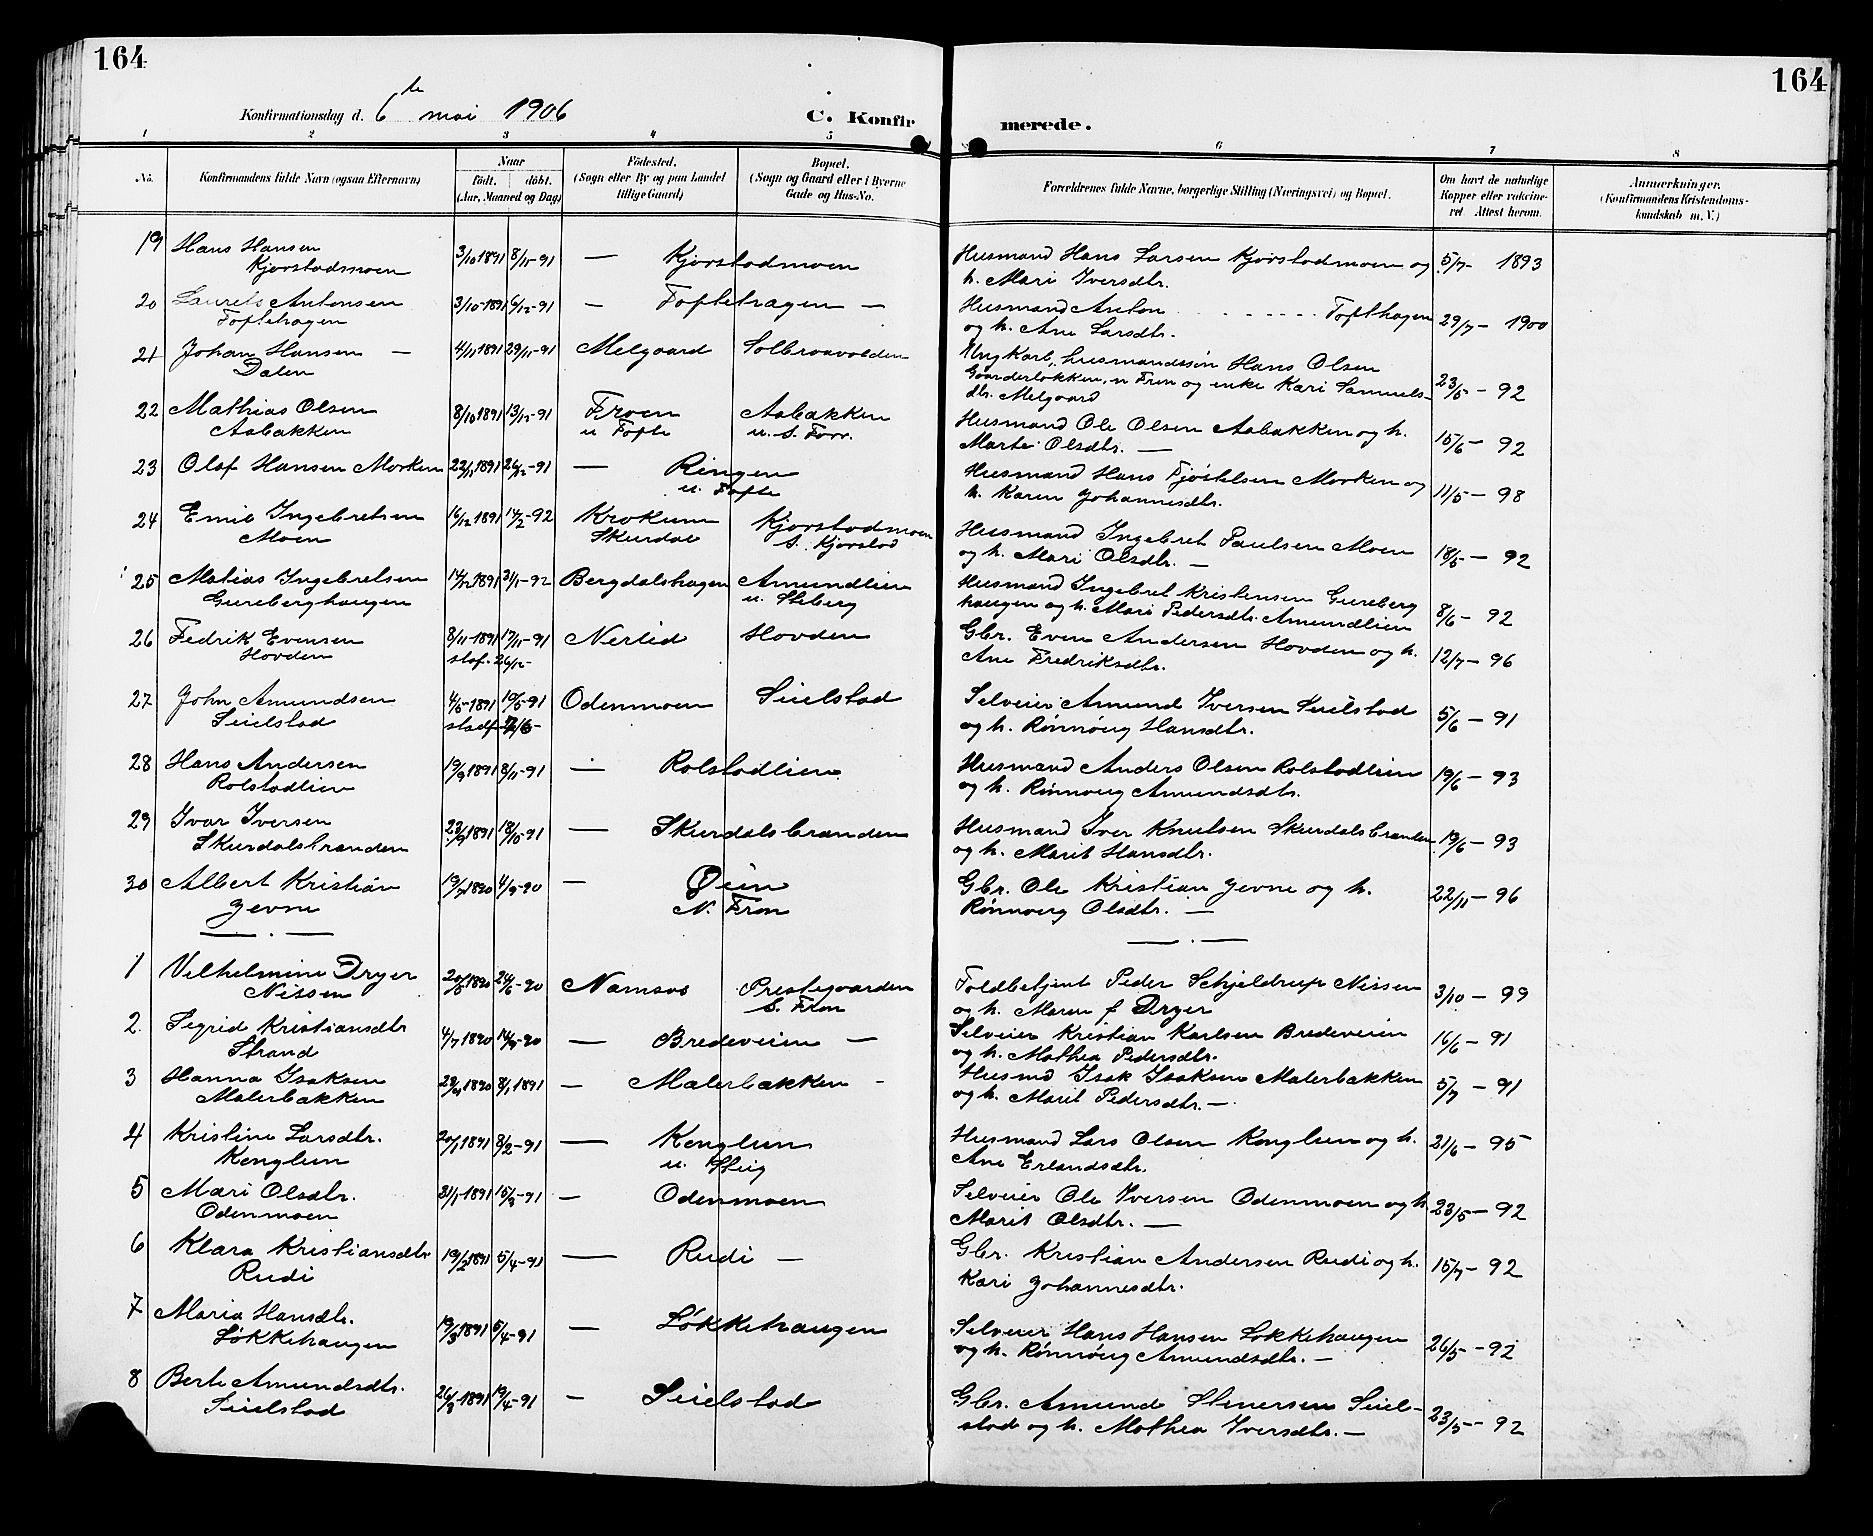 164
164
Konfirmationsdag d. 6te mai 1906
C. Konfirmerede.
1 2 3 4 5 6 7 8
No. Konfirmandens fulde Navn (ogsaa Efternavn) Naar født. døbt. (Aar, Maaned og Dag) Fødested. (Sogn eller By og paa Landet tillige Gaard) Bopæl. (Sogn og Gaard eller i Byerne Gade og Hus-No.) Forældrenes fulde Navne, borgerlige Stilling (Næringsvei) og Bopæl. Om havt de naturlige Kopper eller vaccineret Attest herom. Anmærkninger. (Konfirmandens Kristendomskundskab m. V.)
19 Hans Hansen 3/10 1891 8/11-91 — Kjørstadmoen Husmand Hans Larsen Kjørstadmoen og 5/7- 1893
Kjørstadmoen h. Mari Iversdtr.
20 Laurits Antonsen 3/10-1891 6/12-91 — Toftehagen — Husmand Anton Tofthagen 29/7- 1900
Toftehagen og h. Ane Larsdtr.
21 Johan Hansen — 4/11 1891 29/11-91 Melgaard Solbraavolden Ungkarl, husmandssøn Hans Olsen
Dalen Gaarderløkken, n Fron og enke Kari Samuels- 23/5- 92
dtr. Melgaard
22 Mathias Olsen 8/10 1891 13/12-91 Froen Aabakken Husmand Ole Olsen Aabakken og h. 15/6- 92
Aabakken u Tofte u. S. Forr. Marte Olsdtr. —
23 Olaf Hansen Morken 22/11 1891 26/12-91 — Ringen Husmand Hans Fjøstelsen Morken og 11/5- 98
u. Tofte h. Karen Johannesdtr.
24 Emil Ingebretsen 16/12 1891 14/2-92 Krokum Kjørstadmoen Husmand Ingebret Paulsen Moen 18/5- 92
Moen Skurdal S. Kjørstad og h. Mari Olsdtr. —
25 Matias Ingebretsen 14/12 1891 31/1-92 Bergdalshagen Amundlien Husmand Ingebret Kristensen Gureberg
Gureberghaugen u. Steberg haugen og h. Mari Pedersdtr. Amundlien 8/6- 92
26 Fedrik Evensen 8/11-1891 17/11-91 Nerlid Hovden Gbr. Even Andersen Hovden og h. 12/7- 96
Hovden staf. 26/12- Ane Fredriksdtr.
27 John Amundsen 4/5-1891 10/5-91 Odenmoen Sielstad Selveier Amund Iversen Sielstad 5/6- 91
Seielstad stadf og h. Rønnøug Hansdtr.
28 Hans Andersen 19/9 1891 8/11-91 — Rolstadlien Husmand Anders Olsen Rolstadlien 19/6- 93
Rolstadlien og h. Rønnoug Amundsdtr.
29 Ivar Iversen 23/9 1891 18/10-91 — Skurdalsbranden Husmand Iver Knutsen Skurdalsbranden 19/6- 93
Skurdalsbranden og h. Marit Hansdtr.
30 Albert Kristian 19/7 1890 4/9-90 — Øien Gbr. Ole Kristian Jevne og h. 22/11- 96
Jevne N. Fron Rønnoug Olsdtr. —
1 Vilhelmine Dryer 20/5 1890 24/6-90 Namsos Prestegaarden Toldbetjent Peder Schjeldrup Nissen 3/10- 99
Nissen S. Fron og h. Maren f Dryer
2 Sigrid Kristiansdtr 4/7 1890 14/9-90 — Bredeveien — Selveier Kristian Karlsen Bredeveien 16/6- 91
Strand og h. Mathea Pedersdtr.
3 Hanna Isaksen 29/11 1890 8/1 1891 — Malerbakken - Husmd Isak Isaksen Malerbakken 5/7- 91
Malerbakken og h. Marit Pedersdtr. —
4 Kristine Larsdtr. 20/1 1891 8/2-91 — Kenglien Husmand Lars Olsen Kenglien og h. 21/6- 95
Kenglien u. Steig Ane Erlandsdtr.
5 Mari Olsdtr. 31/1 1891 15/3-91 — Odenmoen Selveier Ole Iversen Odenmoen og h 23/5- 92
Odenmoen Marit Olsdtr. —
6 Klara Kristiansdtr 19/2 1891 5/4-91 — Rudi — Gbr. Kristian Andersen Rudi og h. 15/7- 92
Rudi Kari Johannesdtr.
7 Maria Hansdtr. 19/3 1891 5/4-91 — Løkkehaugen Selveier Hans Hansen Løkkehaugen 26/5- 92
Løkkehaugen og h. Rønnøug Amundsdtr. —
8 Berte Amundsdtr. 26/3 1891 19/4-91 — Seielstad Gbr. Amund Stenersen Seiel- 23/5- 92
Seielstad stad og h. Mathea Iversdtr. —